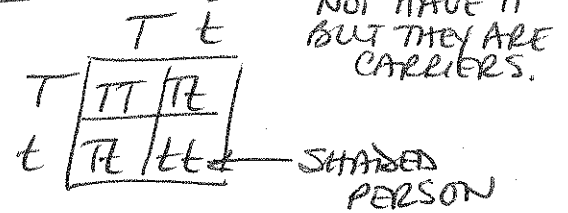 NOT HAVE IT
BUT THEY ARE
CARRIERS.
T t
T TT Tt
t Tt tt
SHADED
PERSON